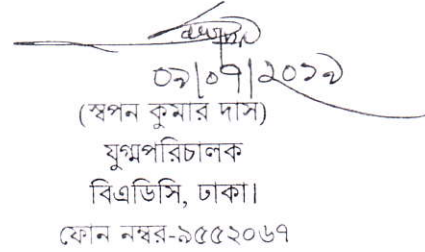 ০৯|০৭|২০১৯
(স্বপন কুমার দাস)
যুগ্মপরিচালক
বিএডিসি, ঢাকা।
ফোন নম্বর-৯৫৫২০৬৭